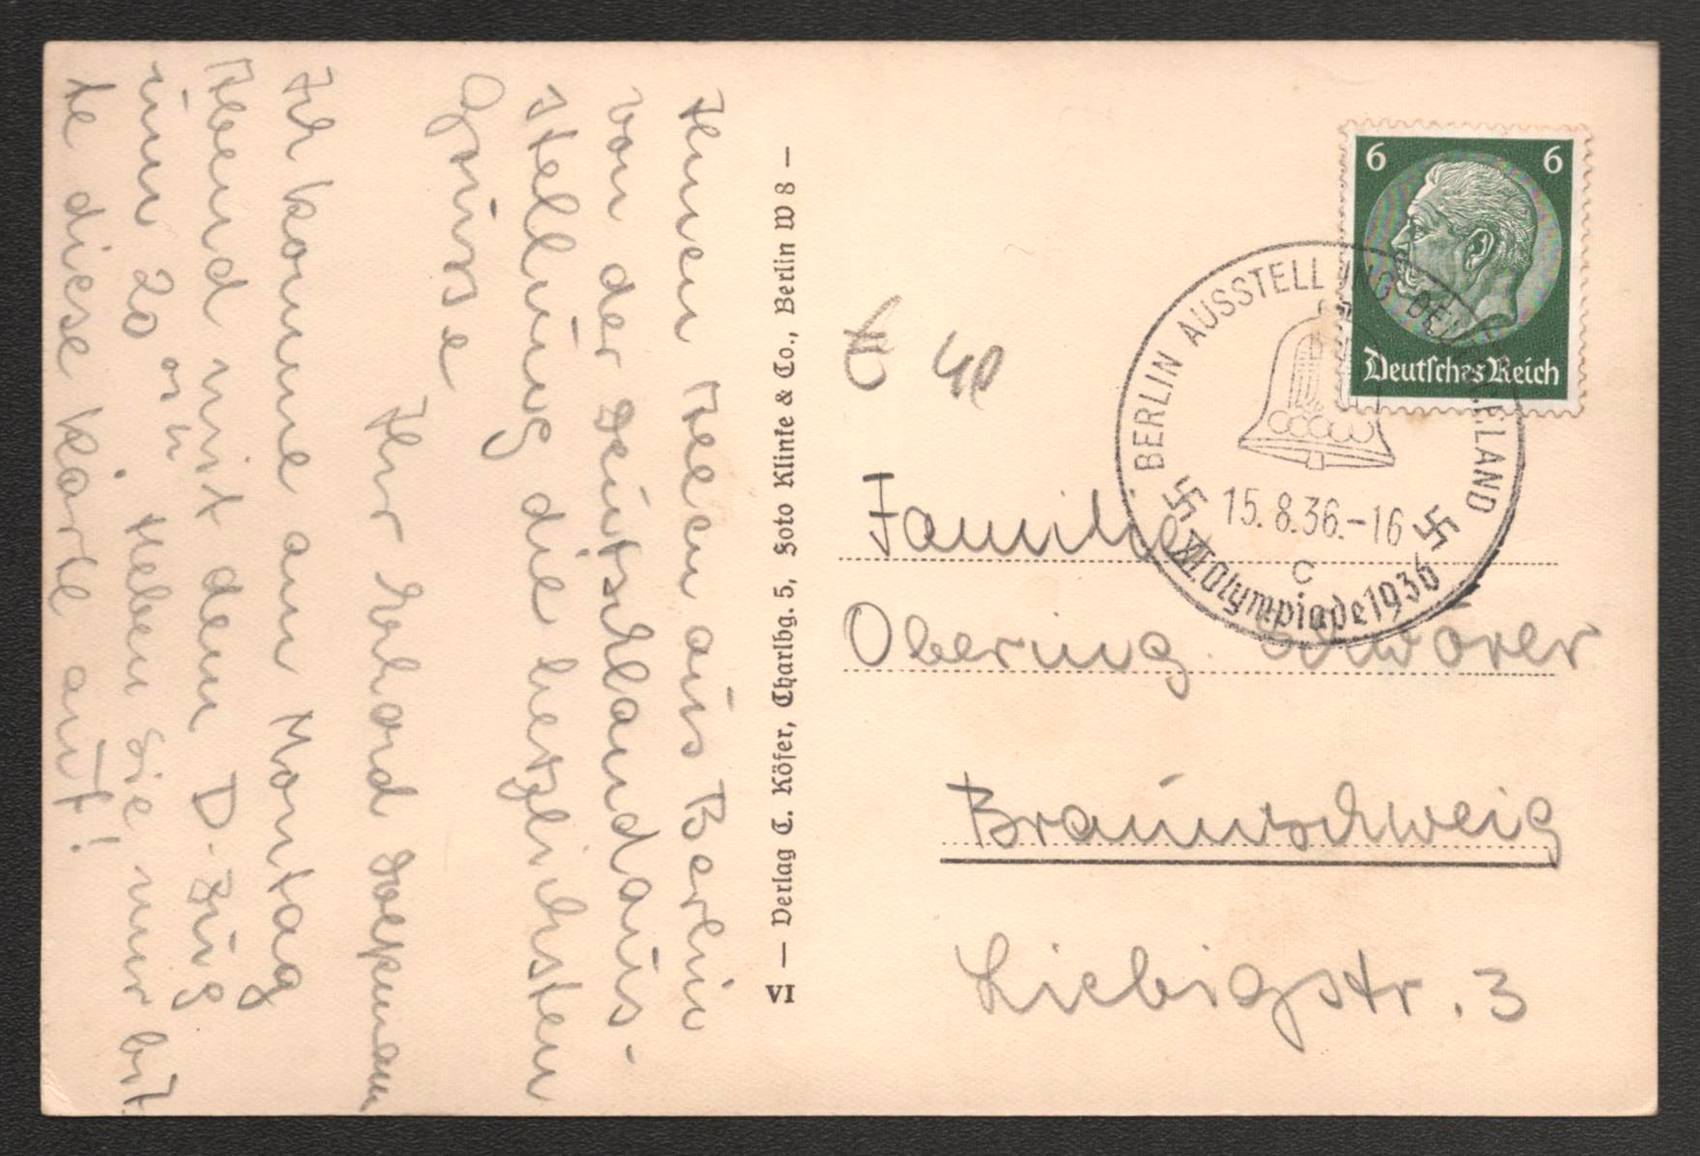 Ihnen Allen aus Berlin
von der Deutschlandaus-
stellung die herzlichsten
Grüsse
Ihr
Ich komme am Montag
Abend mit dem D-Zug
um 20 an. Heben Sie nur bit-
te diese Karte auf!
VI — Verlag C. Köfer, Charlbg. 5, Foto Klinke & Co., Berlin W 8 —
6 6
Deutsches Reich
BERLIN AUSSTELLUNG DEUTSCHLAND
15.8.36.-16
C
XI. Olympiade 1936
40
Familie
Obering.
Braunschweig
Liebigstr. 3